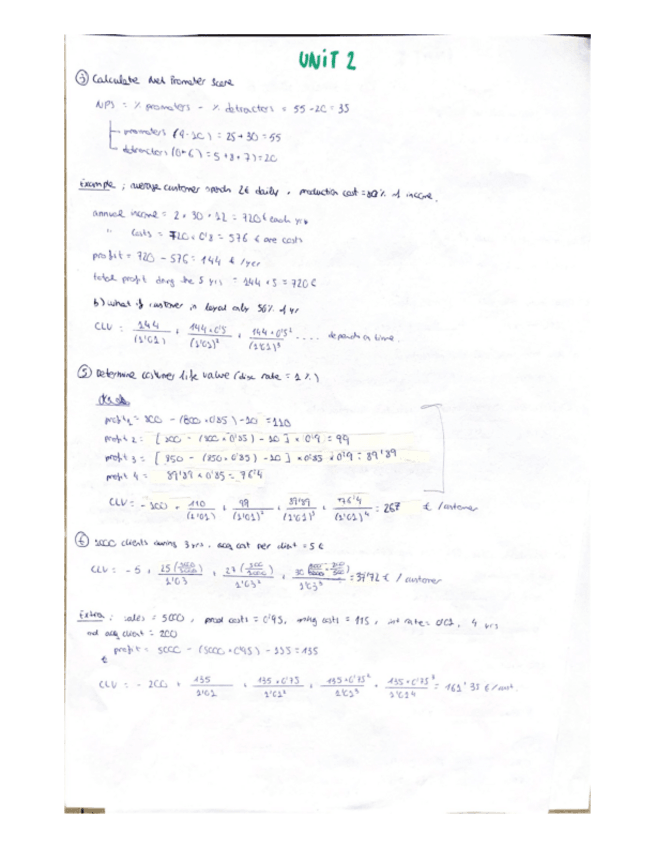 UNIT 2
③ Calculate Net Promoter Score
NPS = % promoters - % detractors = 55 - 20 = 35
promoters (9-10) = 25 + 30 = 55
detractors (0-6) = 5 + 8 + 7 = 20
Example : average customer spends 2€ daily , production cost = 80% of income.
annual income = 2 · 30 · 12 = 720€ each yr
" costs = 720 · 0'8 = 576 € are costs
profit = 720 - 576 = 144 € /yer
total profit during the 5 yrs = 144 · 5 = 720€
b) what if customer is loyal only 50% of yr
CLV = 144/(1'01) + 144·0'5/(1'01)² + 144·0'5²/(1'01)³ .... depends on time.
⑤ Determine costumer life value (disc rate = 1%)
profit 2 = [ - ( · 0'85) - 10 ] · 0'9 = 99
profit 3 = [ - ( · 0'85) - 10 ] · 0'85 · 0'9 = 89'89
profit 4 = 89'89 · 0'85 = 76'4
CLV = - 100 + 110/(1'01) + 99/(1'01)² + 89'89/(1'01)³ + 76'4/(1'01)⁴ = 267 € /costumer
⑥ 1000 clients during 3 yrs, acq cost per client = 5 €
CLV = - 5 + 25 /1'03 + 27 /1'03² + 30 /1'03³ = 37'72 € / customer
Extra : sales = 5000 , prod costs = 0'95, mktg costs = 115 , int rate = 0'01, 4 yrs
and acq client = 200
profit = 5000 - (5000 · 0'95) - 115 = 135
CLV = - 200 + 135/1'01 + 135·0'75/1'01² + 135·0'75²/1'01³ + 135·0'75³/1'01⁴ = 161'35 €/cust.